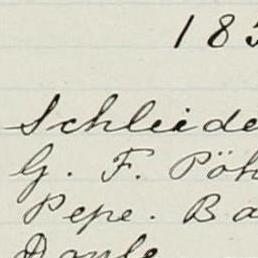 183
Schleide
G. F. Pöh
Pepe. Ba